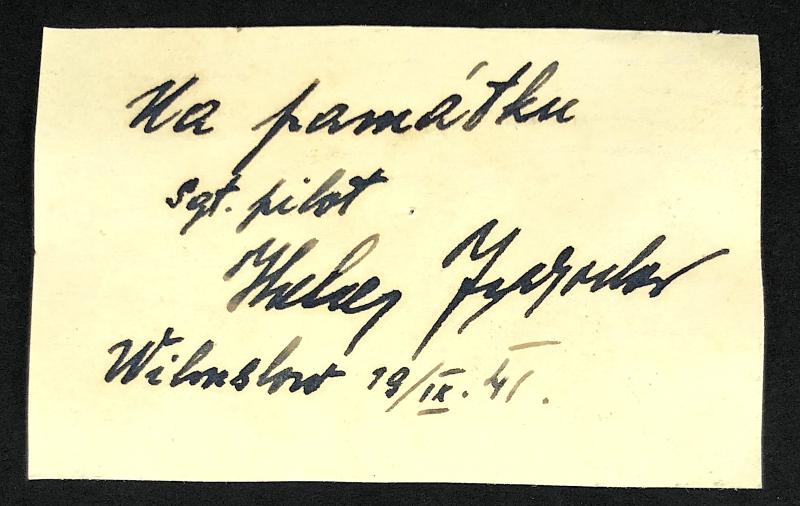 Na památku
sgt. pilot
Wilmslow 19/IX. 41.